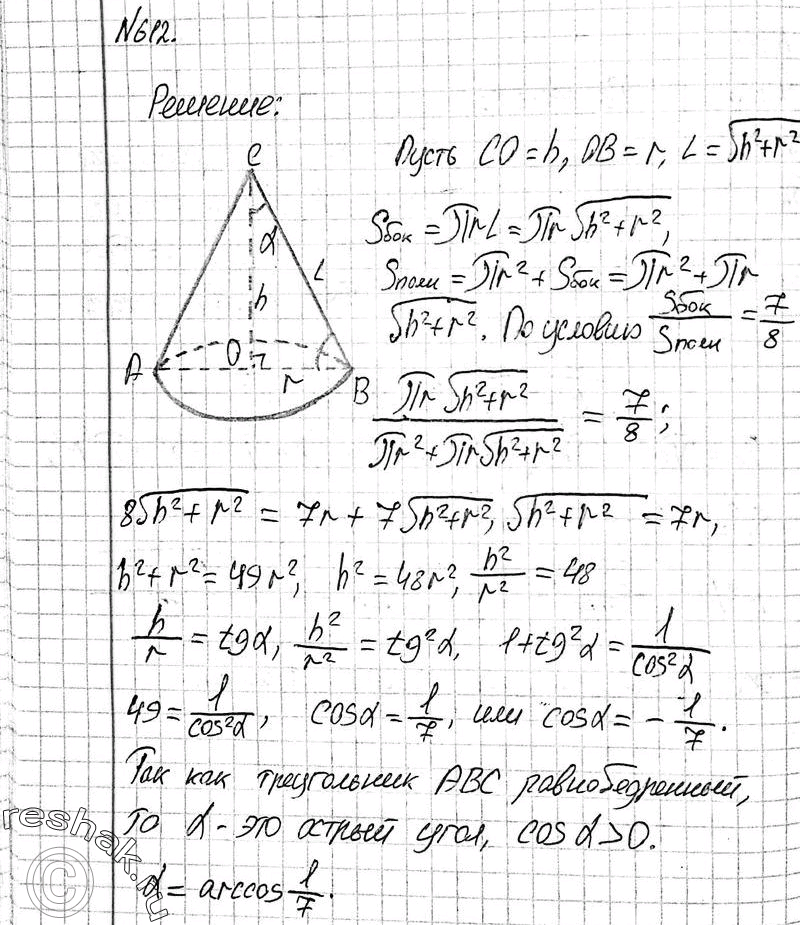 N612.
Решение:
C
α
L
h
A
O
r
B
Пусть CO = h, OB = r, L = √h²+r²
Sбок = πrL = πr √h²+r²,
Sполн = πr² + Sбок = πr² + πr
√h²+r². По условию Sбок/Sполн = 7/8
πr √h²+r² / πr²+πr√h²+r² = 7/8;
8√h²+r² = 7r + 7√h²+r², √h²+r² = 7r,
h²+r² = 49r², h² = 48r², h²/r² = 48
h/r = tgα, h²/r² = tg²α, 1+tg²α = 1/cos²α
49 = 1/cos²α, cosα = 1/7, или cosα = -1/7.
Так как треугольник ABC равнобедренный,
то α - это острый угол, cosα>0.
α = arccos 1/7.
reshak.ru
©